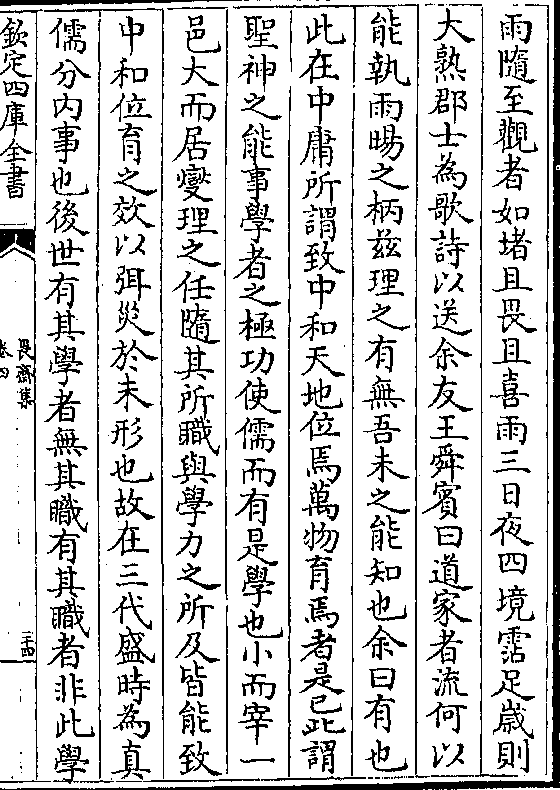 雨隨至觀者如堵且畏且喜雨三日夜四境霑足歲則
大熟郡士為歌詩以送余友王舜賓曰道家者流何以
能執雨暘之柄兹理之有無吾未之能知也余曰有也
此在中庸所謂致中和天地位焉萬物育焉者是已此謂
聖神之能事學者之極功使儒而有是學也小而宰一
邑大而居燮理之任隨其所職與學力之所及皆能致
中和位育之效以弭災於未形也故在三代盛時為真
儒分内事也後世有其學者無其職有其職者非此學
欽定四庫全書
畏齋集
卷四
二十四